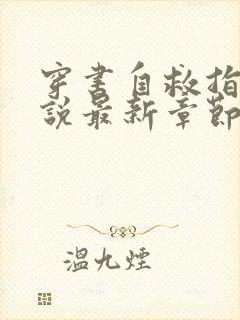 穿書自救指
說最新章節
溫九煙